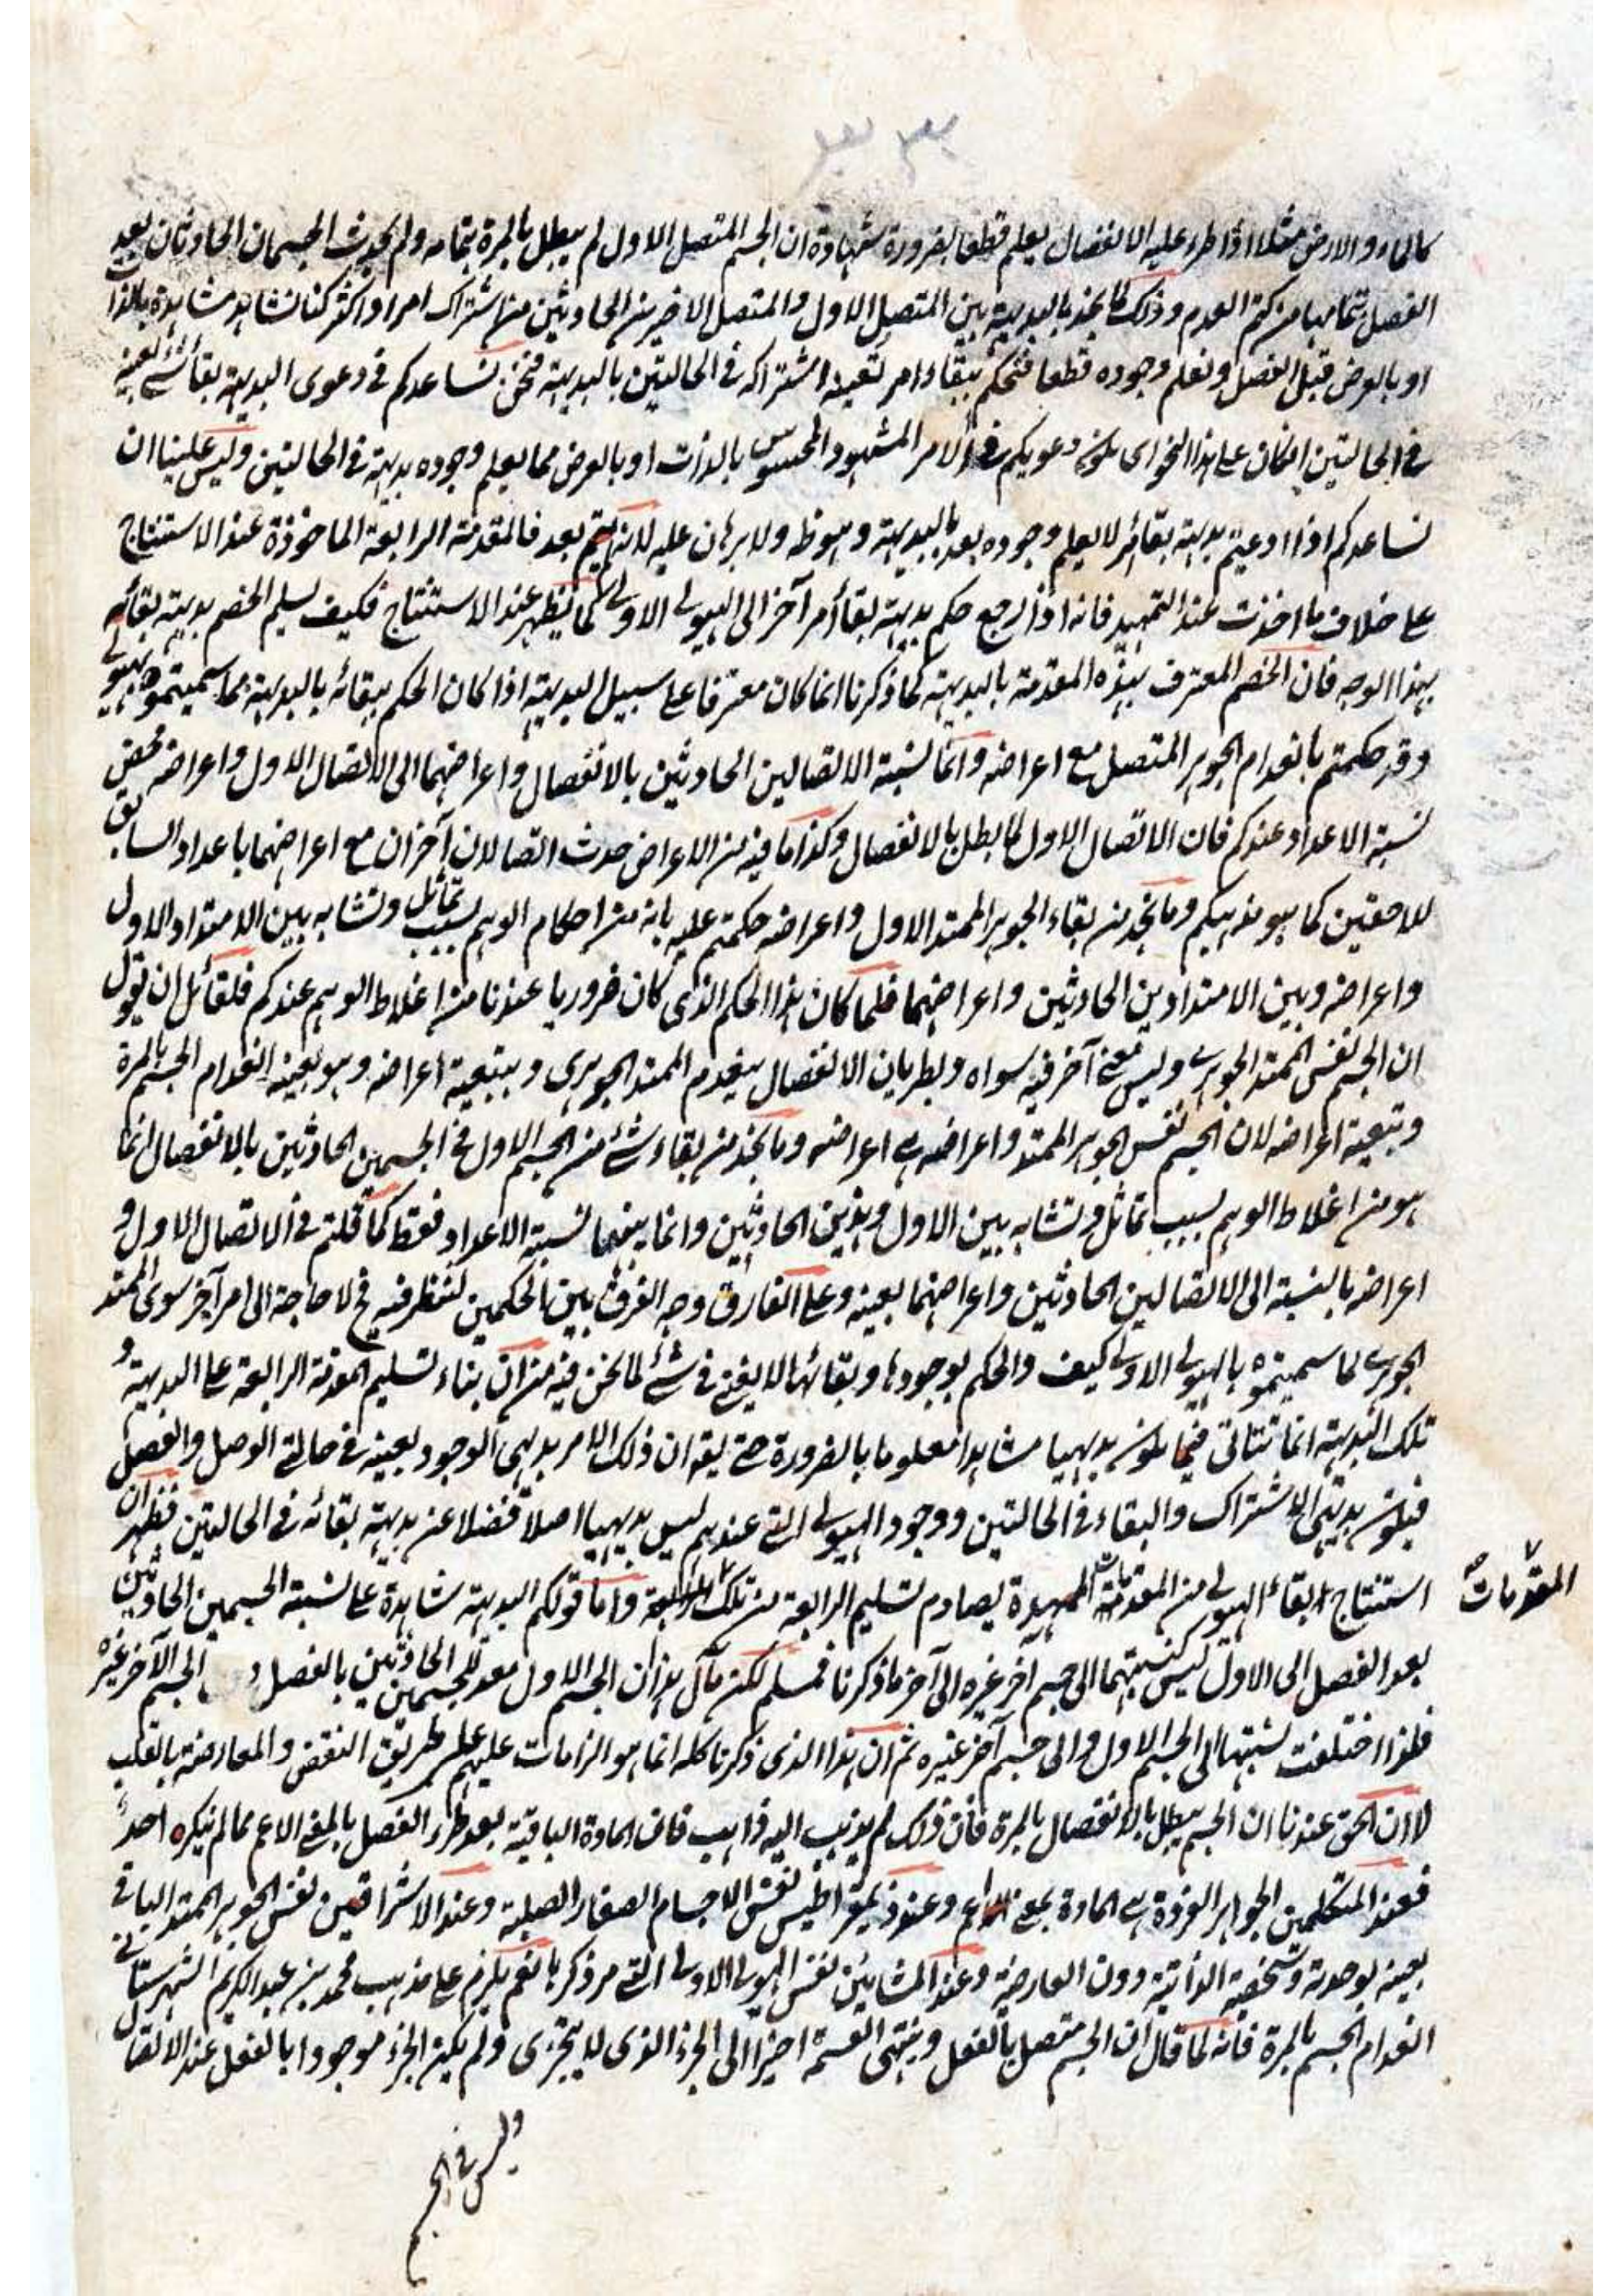 كالماء والارض مثلا اذا طرء عليه الانفصال يعلم قطعا بضرورة شهادة ان الجسم المتصل الاول لم يبطل بالمرة بتمامه ولم يحدث الجسمان الحادثان بعد
الفصل بتمامها من كتم العدم وذلك لما نجد بالبديهة بين المتصل الاول والمتصل الاخيرين الحادثين من اشتراك امر واكثر كنا نشاهد مشاهدة بالذات
او بالعرض قبل الفصل ونعلم وجوده قطعا فنحكم ببقاء امر تعينه اشتراكه في الحالتين بالبديهة فنحن نساعدكم في دعوى البديهة بقاء شئ بعينه
في الحالتين ان كان على هذا النحو اى يكون دعويكم في الامر المشهود المحسوس بالذات او بالعرض مما يعلم وجوده بديهة في الحالتين وليس علينا ان
نساعدكم اذا ادعيتم بديهة بقاء امر لا يعلم وجوده بعد بالبديهة وهو ظ ولا برهان عليه لانه لم يتم بعد فالمقدمة الرابعة الماخوذة عند الاستنتاج
على خلاف ما اخذت عند التمهيد فانه اذا رجع حكم بديهة بقاء أمر آخر الى الهيولى الاولى كما يظهر عند الاستنتاج فكيف يسلم الخصم بديهة بقائه
بهذا الوجه فان الخصم المعترف بهذه المقدمة بالبديهة كما ذكرنا انما كان معترفا على سبيل البديهة اذا كان الحكم ببقائه بالبديهة مما سميتموه بهيولى
وقد حكمتم بانعدام الجوهر المتصل مع اعراضه وانما نسبة الاتصالين الحادثين بالانفصال واعراضهما الى الاتصال الاول واعراضه محض
نسبة الاعداد عندكم فان الاتصال الاول لما بطل بالانفصال وكذا ما فيه من الاعراض حدث اتصالان آخران مع اعراضهما باعداد السابق
للاحقين كما هو مذهبكم وما نجد من بقاء الجوهر الممتد الاول واعراضه حكمتم عليه بانه من احكام الوهم بسبب تماثل وتشابه بين الامتداد الاول
واعراضه وبين الامتدادين الحادثين واعراضهما فلما كان هذا الحكم الذى كان ضروريا عندنا من اغلاط الوهم عندكم فلقائل ان يقول
ان الجسم نفس الممتد الجوهرى وليس معنى آخر فيه سواه وبطريان الانفصال ينعدم الممتد الجوهرى وبتبعية اعراضه وهو بعينه انعدام الجسم بالمرة
وتبعية اعراضه لان الجسم نفس الجوهر الممتد واعراضه هى اعراضه وما نجد من بقاء شئ من الجسم الاول في الجسمين الحادثين بالانفصال انما
هو من اغلاط الوهم بسبب تماثل وتشابه بين الاول وهذين الحادثين وانما بينهما نسبة الاعداد فقط كما قلتم في الاتصال الاول و
اعراضه بالنسبة الى الاتصالين الحادثين واعراضهما بعينه وعلى الفارق وجه الفرق بين الحكمين لننظر فيه فح لا حاجة الى امر آخر سوى الممتد
الجوهرى لما سميتموه بالهيولى الاولى كيف والحكم بوجودها وبقائها لا يغنى في شئ لما نحن فيه من ان بناء تسليم المقدمة الرابعة على البديهة و
تلك البديهة انما تتاتى فيما يكون بديهيا مشاهدا معلوما بالضرورة حتى يقه ان ذلك الامر بديهى الوجود بعينه في حالتى الوصل والفصل
فيكون بديهى الاشتراك والبقاء في الحالتين ووجود الهيولى التى عندهم ليس بديهيا اصلا فضلا عن بديهة بقائه في الحالتين فظهر ان
استنتاج بقاء الهيولى من المقدمات الممهدة يصادم تسليم الرابعة من تلك واما قولكم البديهة شاهدة على نسبة الجسمين الحادثين
المقدمات
بعد الفصل الى الاول ليس كنسبتهما الى جسم آخر غيره الى آخر ما ذكرنا فمسلم لكن مآل هذا ان الجسم الاول معد للجسمين الحادثين بالفصل و الجسم الآخر غيره
فلهذا اختلفت نسبتها الى الجسم الاول والى جسم آخر غيره ثم ان هذا الذى ذكرنا كله انما هو الزامات عليهم على طريق النقض والمعارضة بالقلب
لا ان الحق عندنا ان الجسم يبطل بالانفصال بالمرة فان ذلك لم يذهب اليه ذاهب فان المادة الباقية بعد طرء الفصل بالمعنى الاعم مما لم ينكره احد
فعند المتكلمين الجواهر الفردة هى المادة بمعنى الاعم وعند ذيمقراطيس نفس الاجسام الصغار الصلبة وعند الاشراقيين نفس الجوهر الممتد الباقى
بعينه بوحدته وشخصية الذاتية دون العارضية وعند المشائين نفس الهيولى الاولى التى مر ذكرها نعم يلزم على مذهب محمد بن عبد الكريم الشهرستانى
انعدام الجسم بالمرة فانه لما قال ان الجسم متصل بالفعل وينتهى القسمة اخيرا الى الجزء الذى لا يتجزى ولم يكن الجزء موجودا بالفعل عند الاتصا
وليس في الجسم